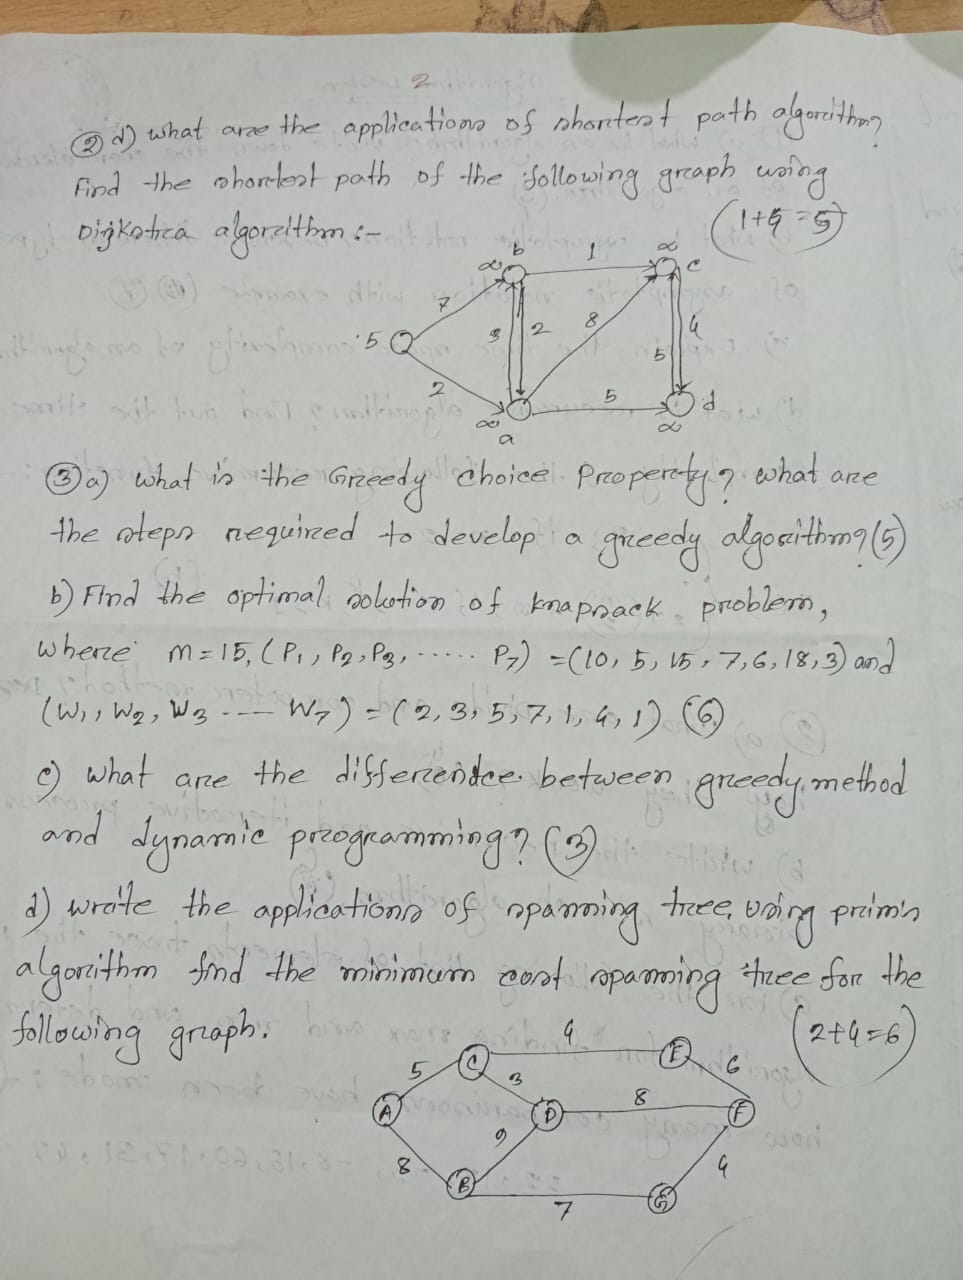 2
② d) what are the applications of shortest path algorithm?
Find the shortest path of the following graph using
Dijkstra algorithm :-
(1+4=5)
b 1 ∞
∞ c
7
3 2 8 4
5
5
2 5 d
∞ ∞
a
③ a) what is the Greedy choice Property? what are
the steps required to develop a greedy algorithm? (5)
b) Find the optimal solution of knapsack problem,
where m=15, (P1, P2, P3, ..... P7) = (10, 5, 15, 7, 6, 18, 3) and
(W1, W2, W3 ---- W7) = (2, 3, 5, 7, 1, 4, 1) (6)
c) what are the difference between greedy method
and dynamic programming? (3)
d) write the applications of spanning tree, using prim's
algorithm find the minimum cost spanning tree for the
following graph.
(2+4=6)
4
C E
5 3 6
A D 8 F
8 9 4
B G
7